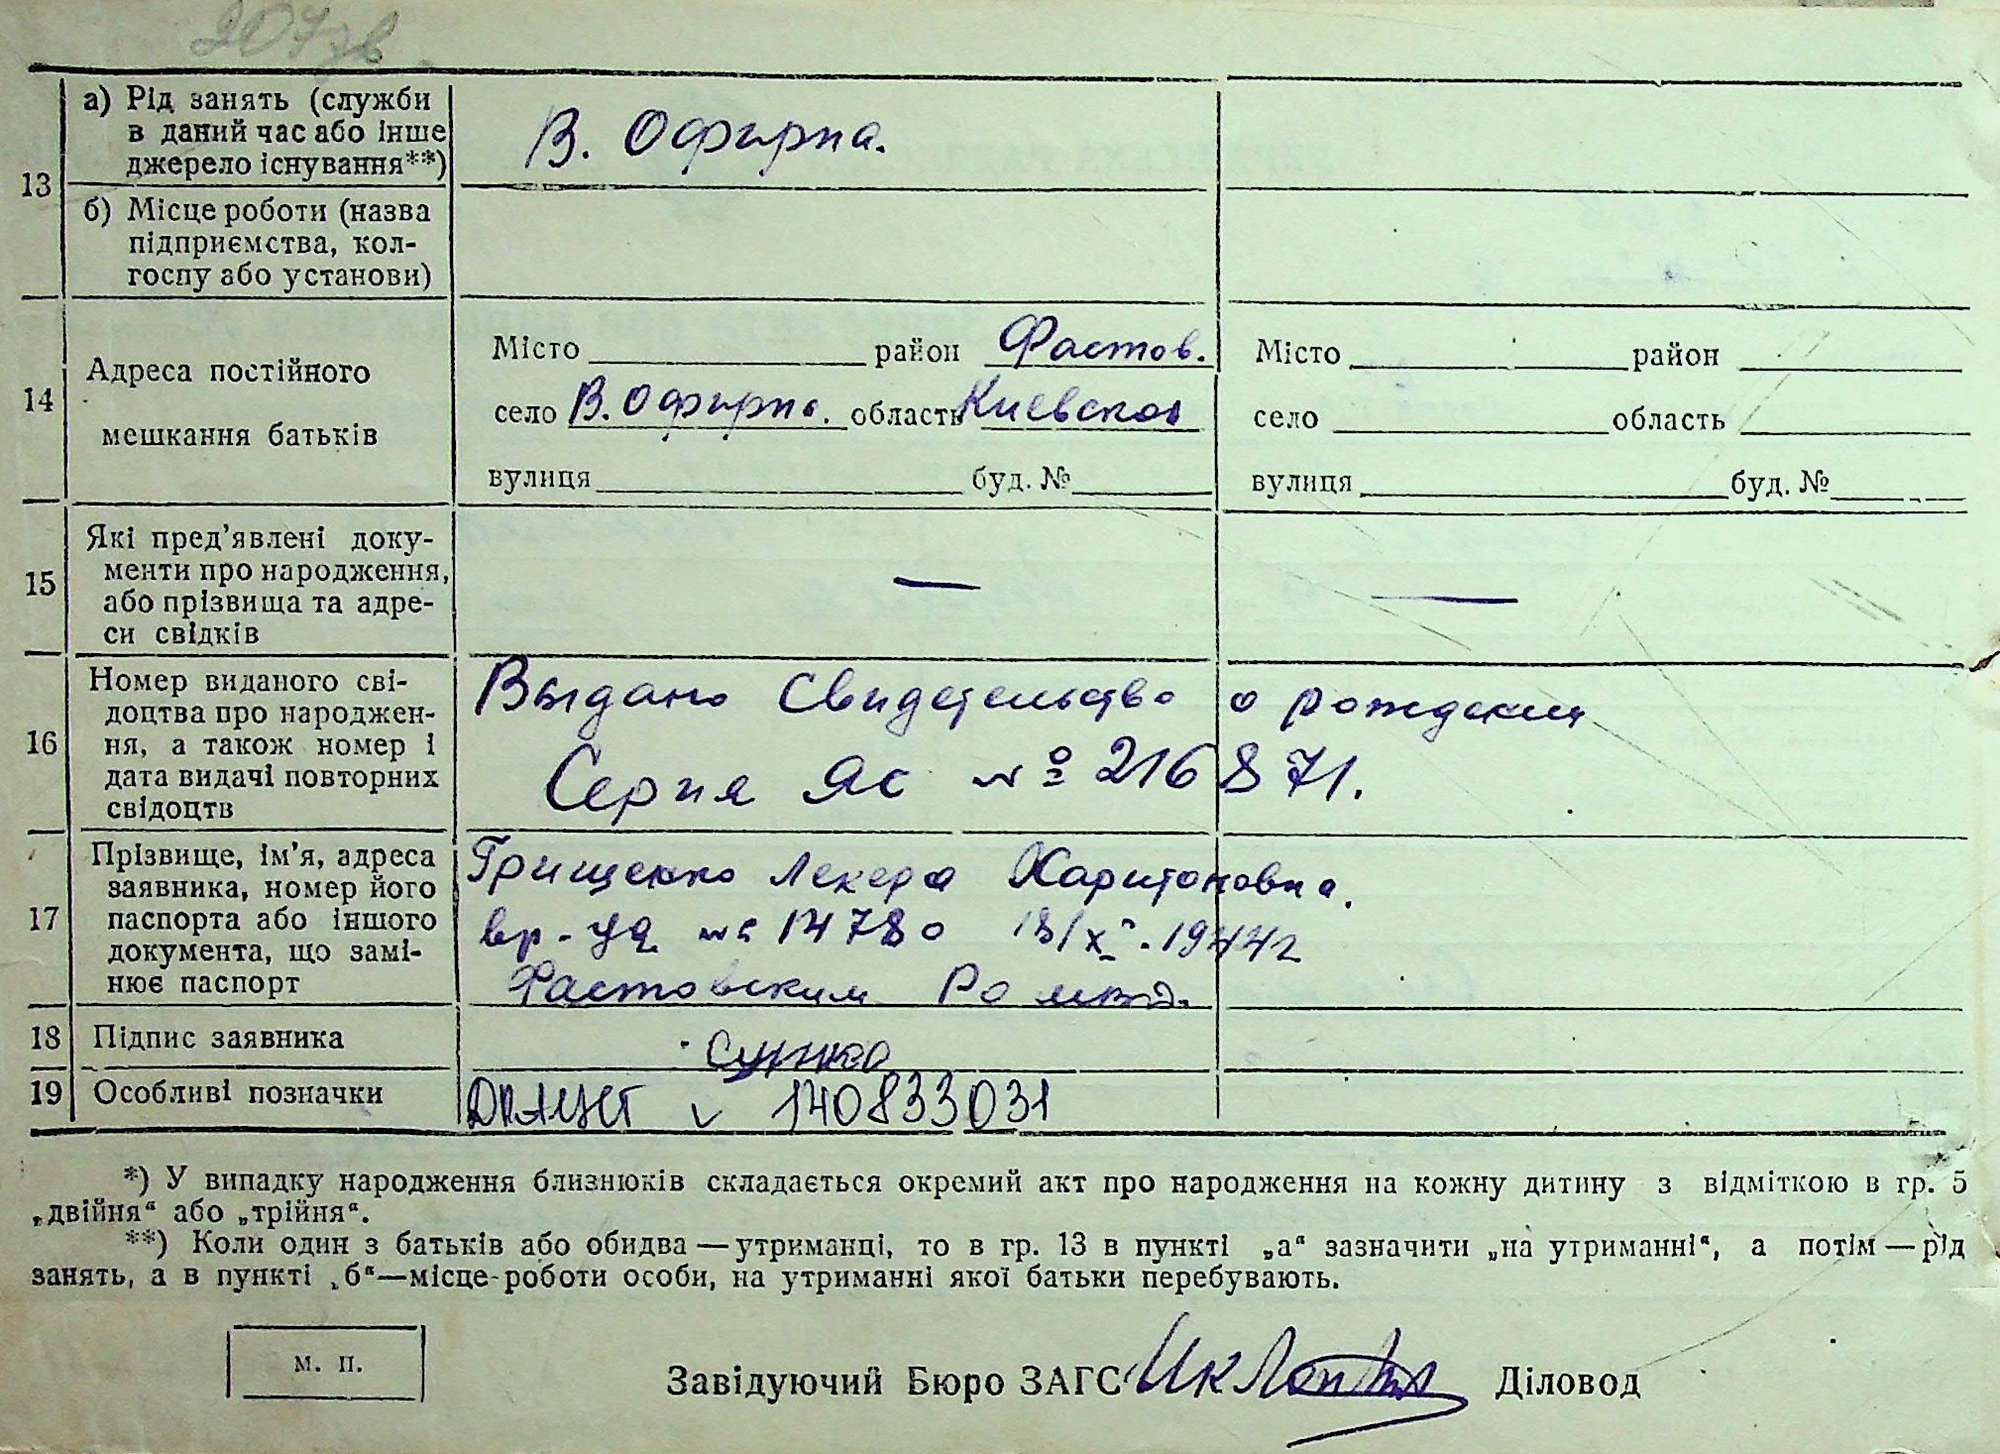 207зв
13 а) Рід занять (служби
в даний час або інше
джерело існування**)
В. Офирна.
б) Місце роботи (назва
підприємства, кол-
госпу або установи)
14 Адреса постійного
мешкання батьків
Місто район Фастов. Місто район
село В. Офирна. область Киевской село область
вулиця буд. № вулиця буд. №
15 Які пред'явлені доку-
менти про народження,
або прізвища та адре-
си свідків
— —
16 Номер виданого сві-
доцтва про народжен-
ня, а також номер і
дата видачі повторних
свідоцтв
Выдано Свидетельство о рождении
Серия ЯС № 216871.
17 Прізвище, ім'я, адреса
заявника, номер його
паспорта або іншого
документа, що замі-
нює паспорт
Грищенко Лекера Харитоновна.
вр-уд № 14780 18/X. 1944г
Фастовским Ро
18 Підпис заявника
19 Особливі позначки
ДРАЦСГ v 140833031
*) У випадку народження близнюків складається окремий акт про народження на кожну дитину з відміткою в гр. 5
„двійня“ або „трійня“.
**) Коли один з батьків або обидва — утриманці, то в гр. 13 в пункті „а“ зазначити „на утриманні“, а потім — рід
занять, а в пункті „б“—місце роботи особи, на утриманні якої батьки перебувають.
м. п.
Завідуючий Бюро ЗАГС Діловод